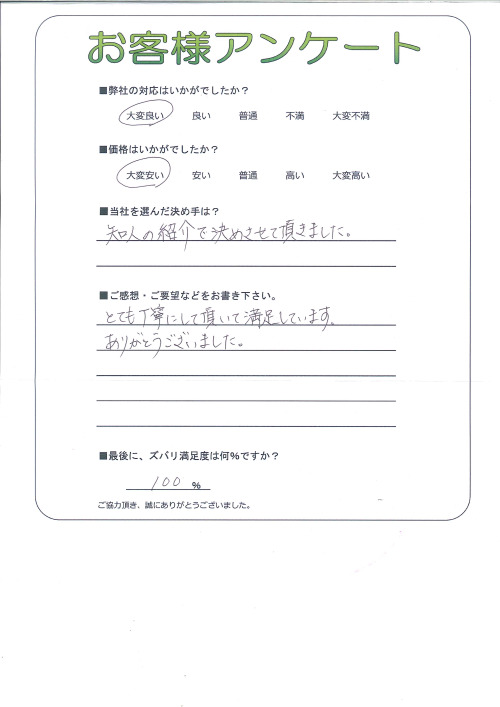 お客様アンケート
■弊社の対応はいかがでしたか？
大変良い 良い 普通 不満 大変不満
■価格はいかがでしたか？
大変安い 安い 普通 高い 大変高い
■当社を選んだ決め手は？
知人の紹介で決めさせて頂きました。
■ご感想・ご要望などをお書き下さい。
とても丁寧にして頂いて満足しています。
ありがとうございました。
■最後に、ズバリ満足度は何％ですか？
100 %
ご協力頂き、誠にありがとうございました。